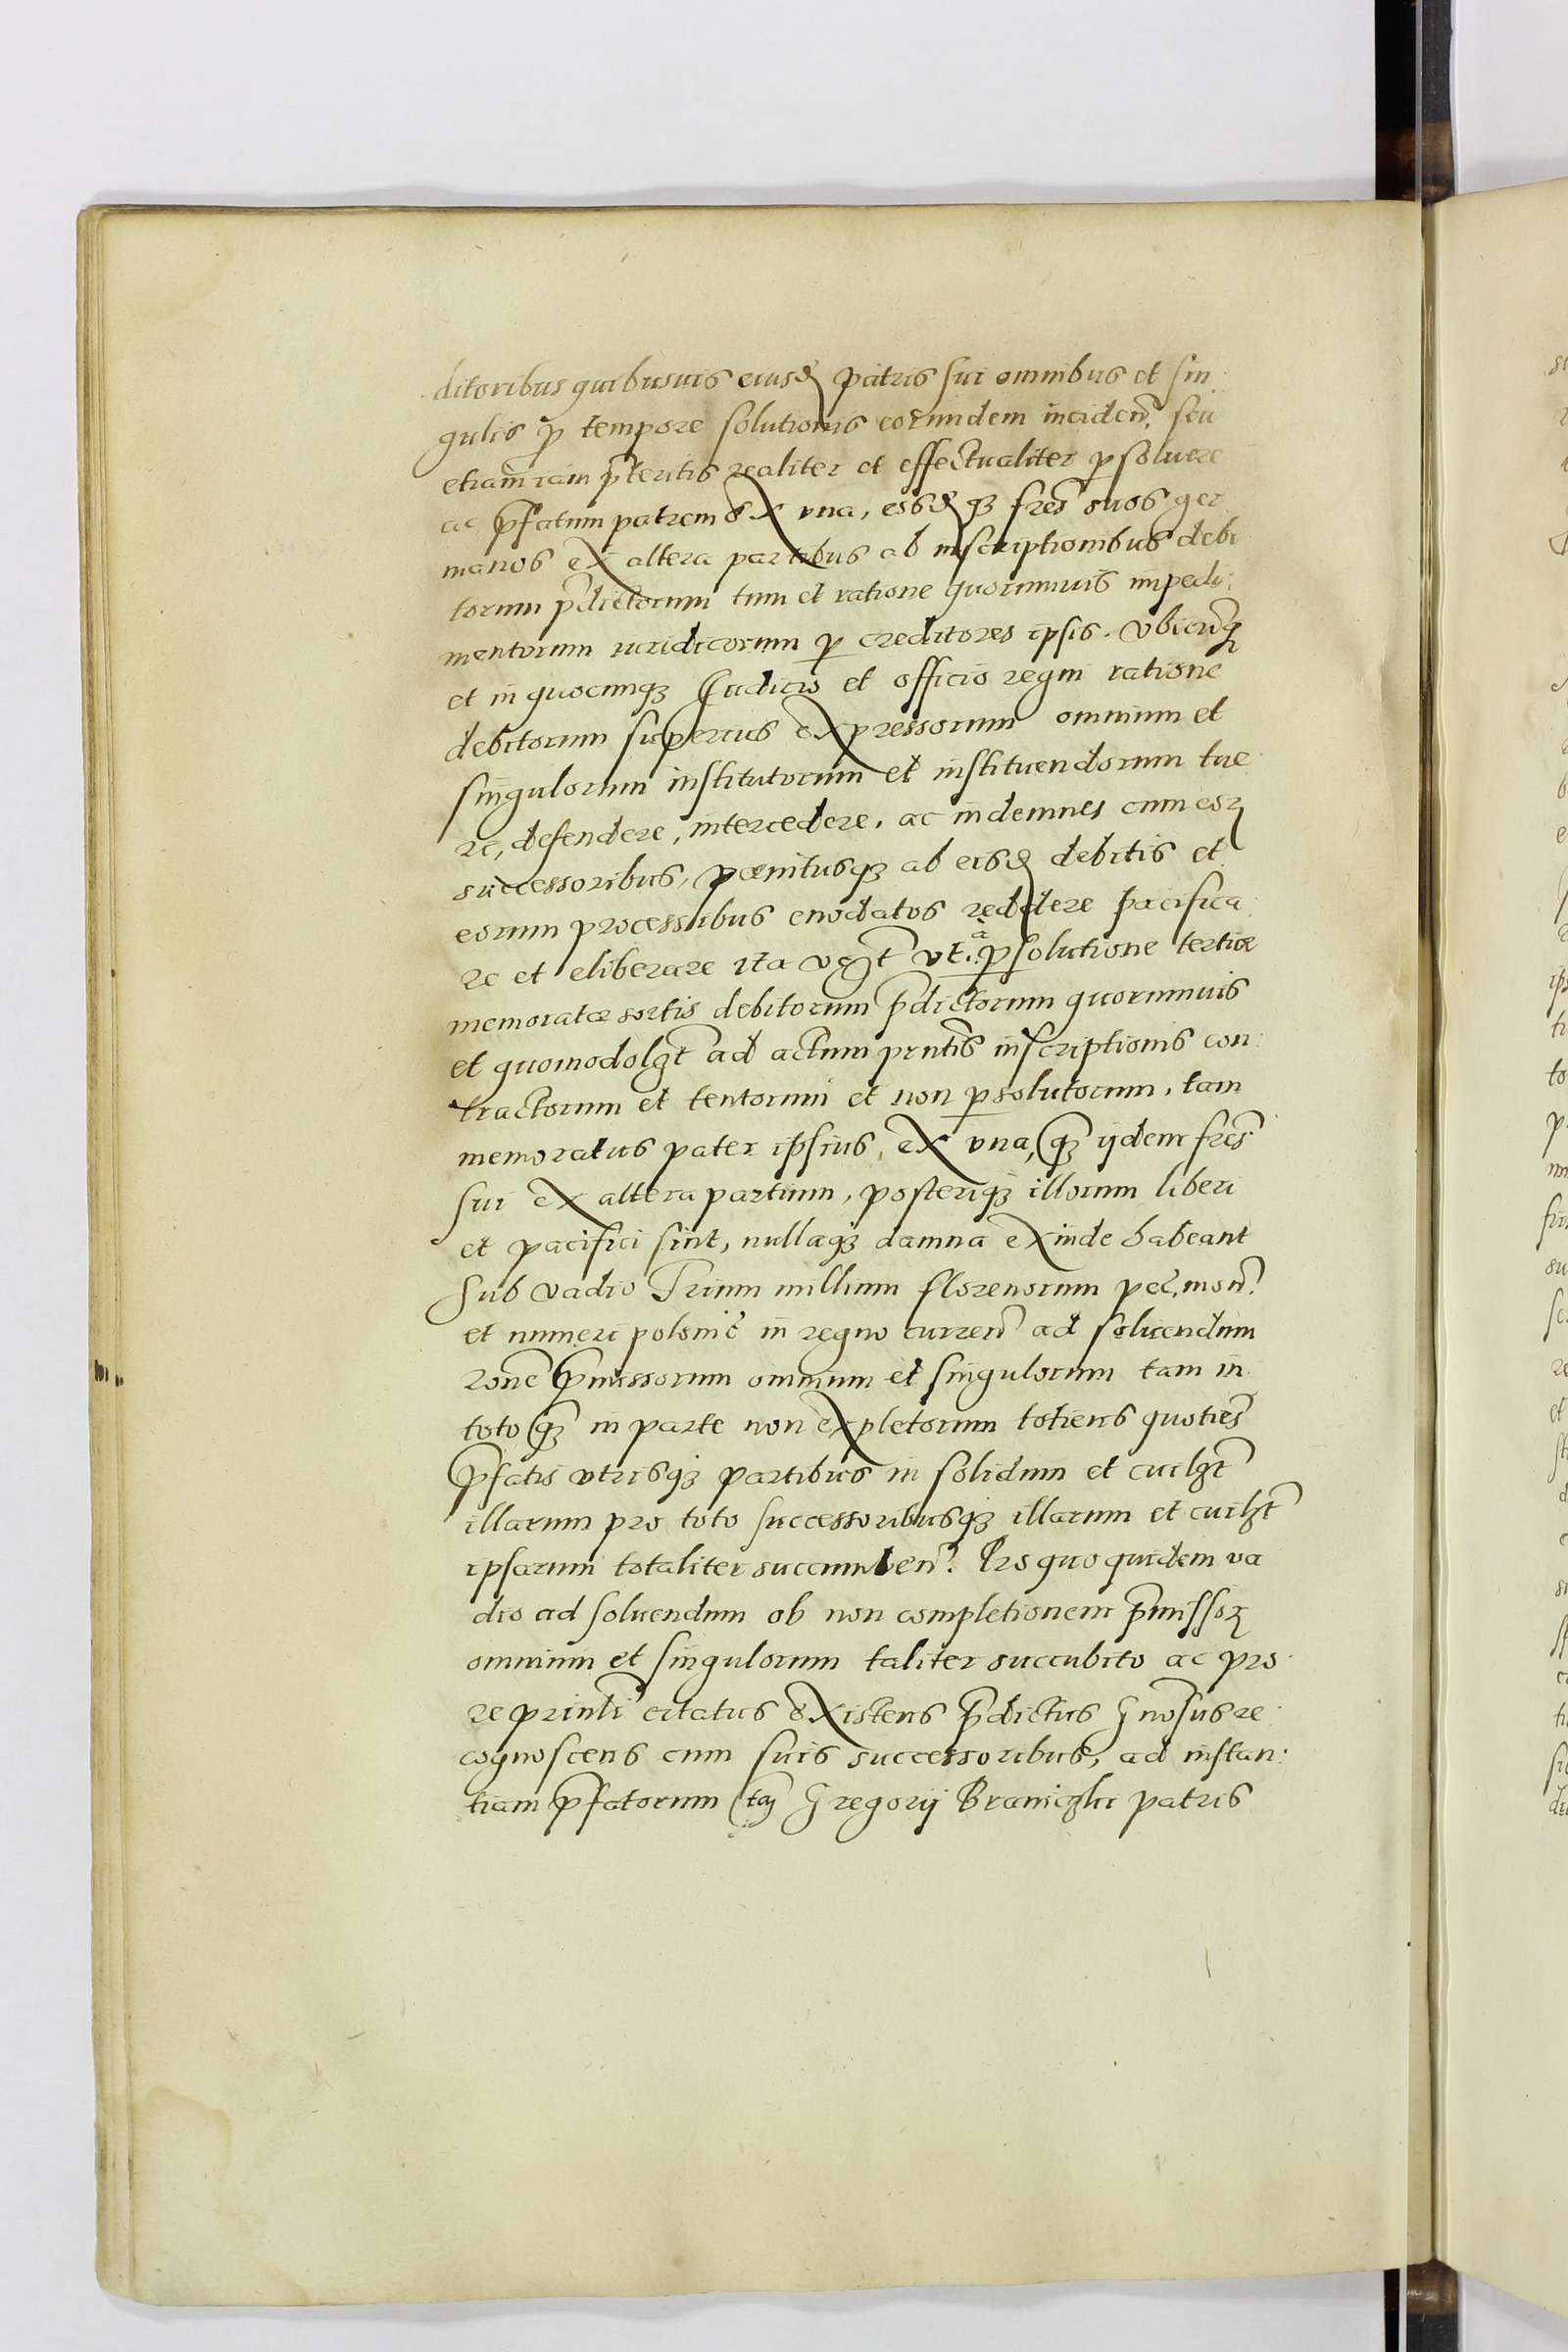 ditoribus quibusuis eiusđ patris sui omnibus et sin
gulis p̱ tempore solutionis eorundem inciden̄. seu
etiam iam p̄teritis realiter et effectualiter p̱soluere
ac p̄fatum patrem ex vna, eosđqꝫ fres̄ suos ger
manos ex altera partibus ab inscriptionibus debi
torum p̄dictorum tum et ratione quorumuis impedi:
mentorum iuridicorum p̱ creditores ipsis. vbicun̄qꝫ
et in quocunqꝫ Iudicio et officio regni ratione
debitorum superius expressorum omnium et
singulorum institutorum et instituendorum tue
re, defendere, intercedere, ac indemnes cum eoꝝ
successoribus, poenitusqꝫ ab eisđ debitis et
eorum processibus enodatos reddere pacifica
re et eliberare ita vꝫt vt. à p̱solutione tertiæ
memoratæ sortis debitorum p̄dictorum quorumuis
et quomodolꝫt ad actum pn̄tis inscriptionis con:
tractorum et tentorum et non p̱solutorum, tam
memoratus pater ipsius, ex vna, qꝫ ijdem fres̄
sui ex altera partium, posteriqꝫ illorum liberi
et pacifici sint, nullaqꝫ damna exinde habeant
Sub vadio Trium millium florenorum pec̄. mon̄.
et numeri polonic̄ in regno curren̄ ad soluendum
rōne p̄missorum omnium et singulorum tam in
toto qꝫ in parte non expletorum totiens quoties̄
p̄fatis vtrisqꝫ partibus in solidum et cuilꝫt
illarum pro toto successoribusqꝫ illarum et cuilꝫt
ipsarum totaliter succumben̄. Pro quo quidem va
dio ad soluendum ob non completionem p̄missoꝝ
omnium et singulorum taliter succubito ac pro
re printi citatus existens p̄dictus Gnōsus re
cognoscens cum suis successoribus, ad instan:
tiam p̄fatorum tā Gregorij Braniczki patris